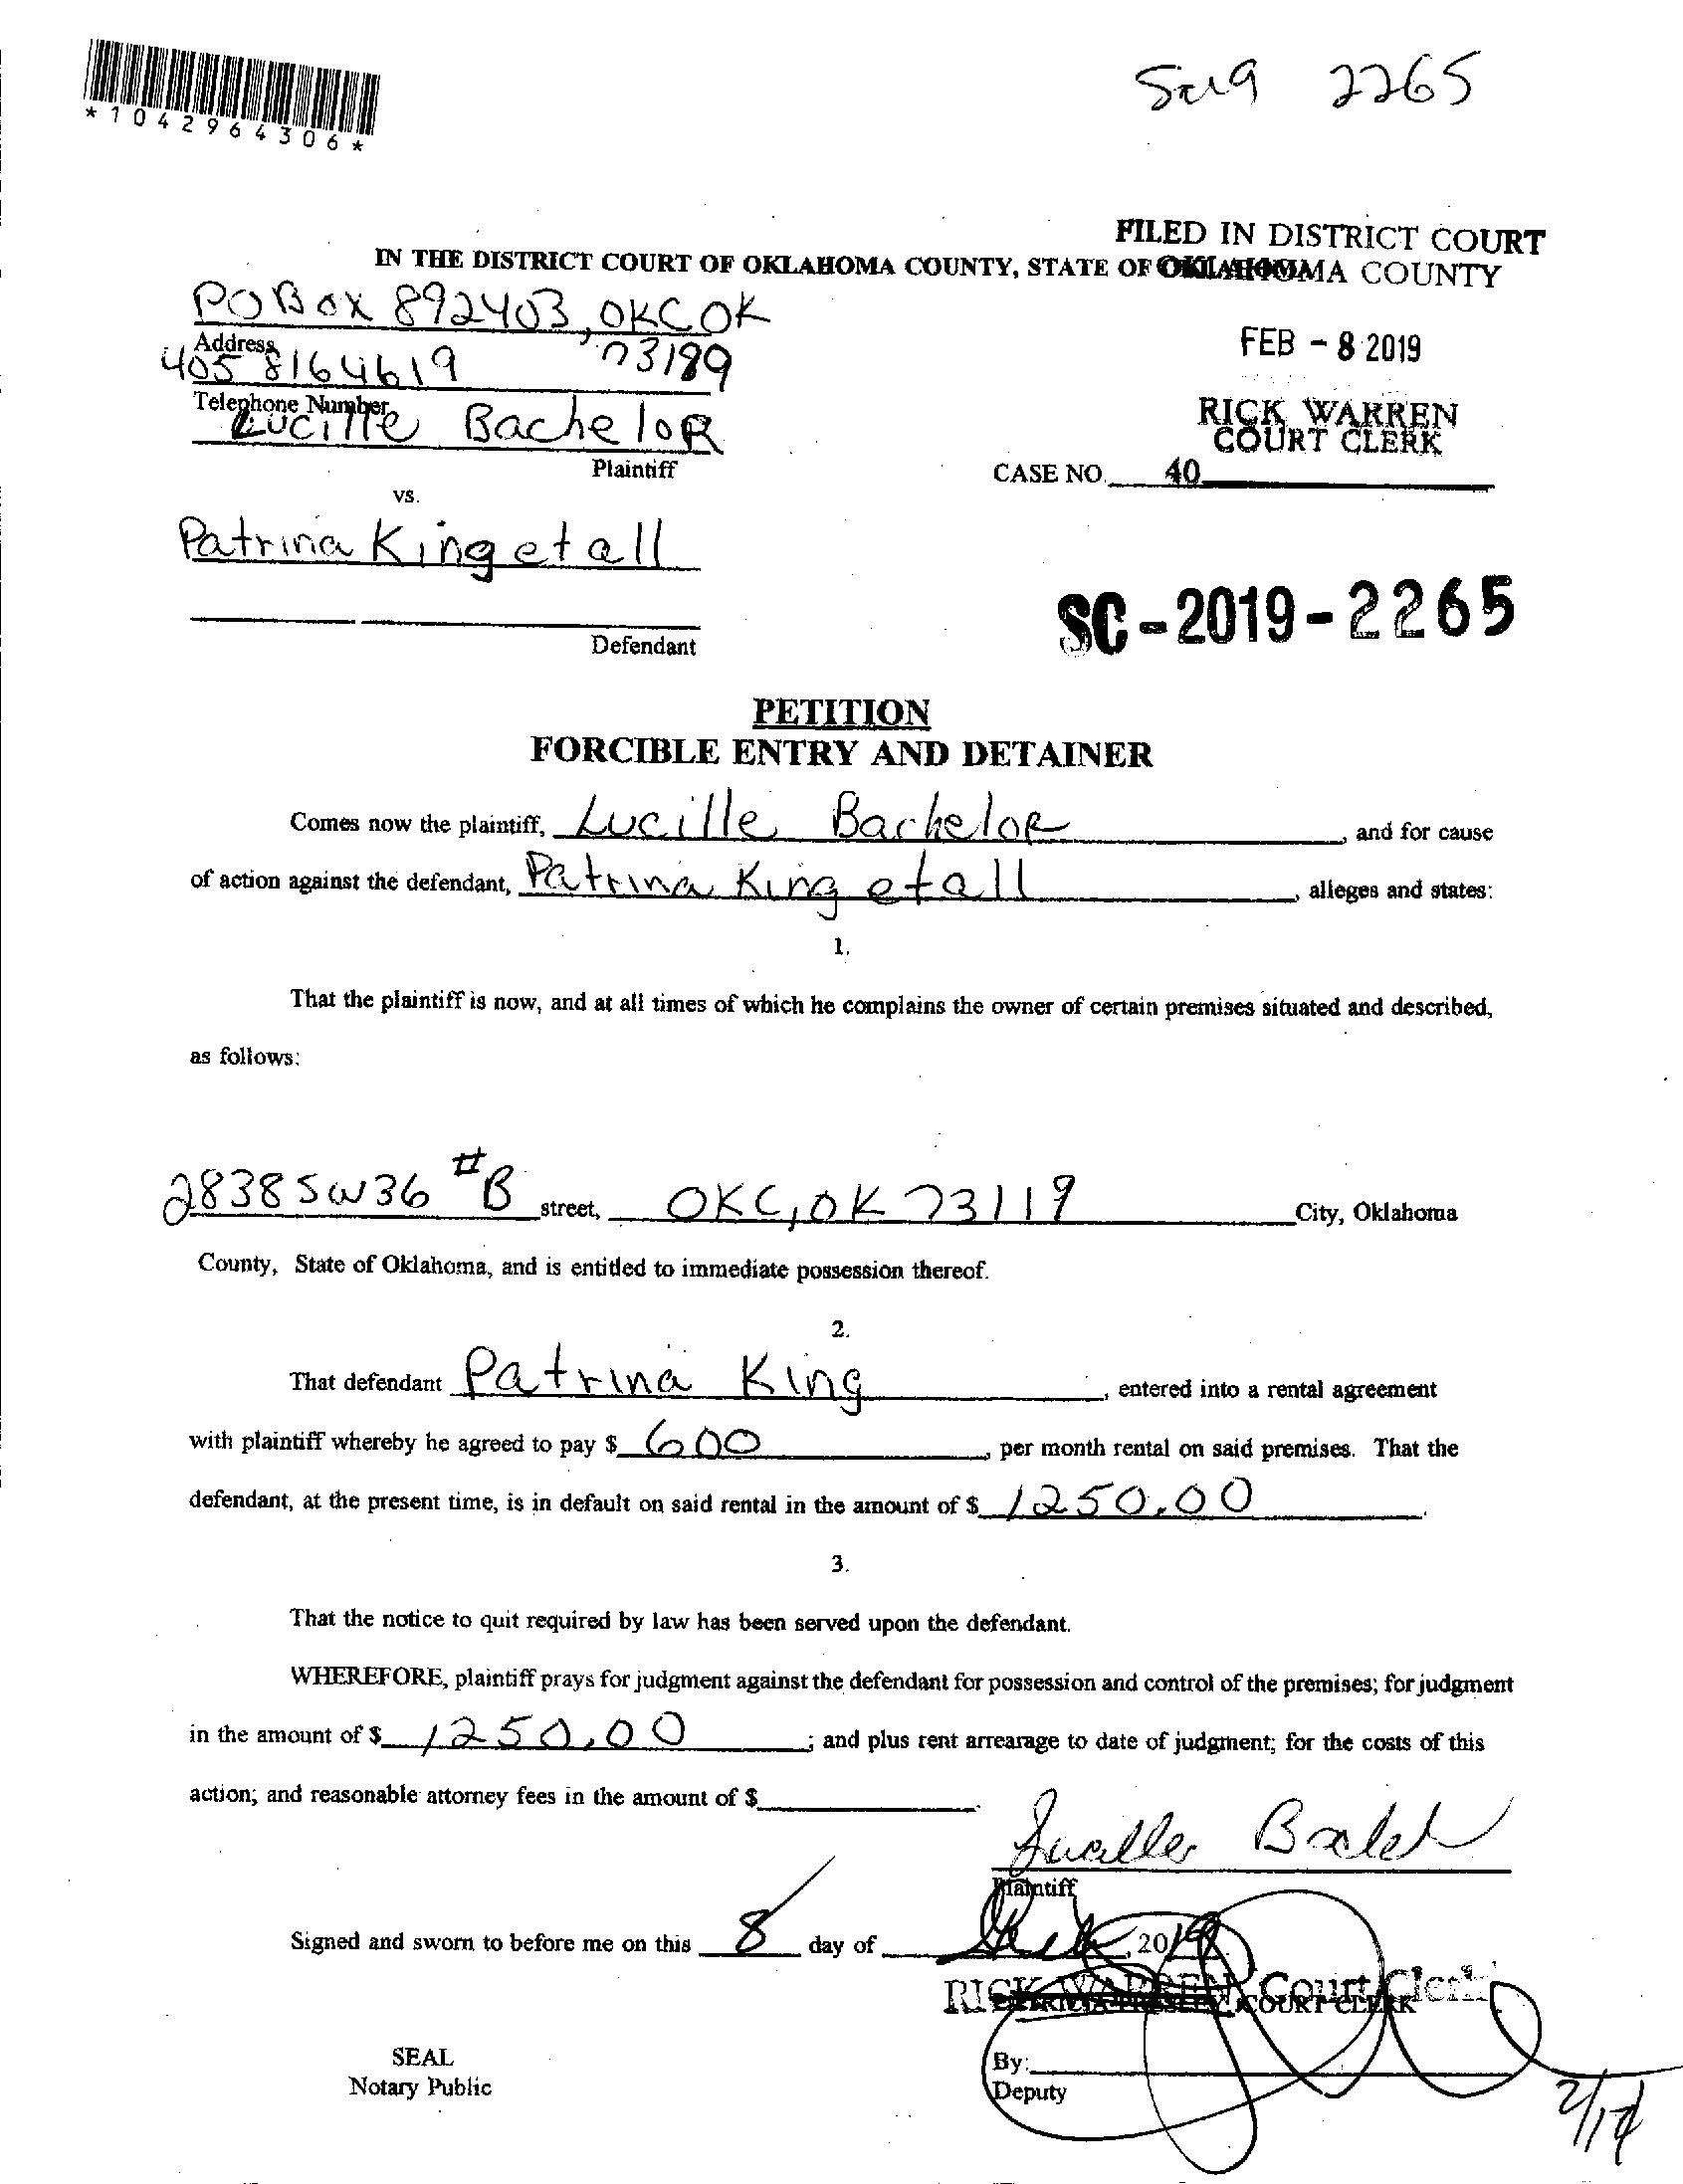 *1042964306*
SC19 2265
FILED IN DISTRICT COURT
OKLAHOMA COUNTY
IN THE DISTRICT COURT OF OKLAHOMA COUNTY, STATE OF OKLAHOMA
PO Box 892403, OKC OK
73189
Address
405 8164619
Telephone Number
Lucille Bachelor
Plaintiff
FEB - 8 2019
RICK WARREN
COURT CLERK
CASE NO. 40
vs.
Patrina King et all
Defendant
SC - 2019 - 2265
PETITION
FORCIBLE ENTRY AND DETAINER
Comes now the plaintiff, Lucille Bachelor, and for cause
of action against the defendant, Patrina King et all, alleges and states:
1.
That the plaintiff is now, and at all times of which he complains the owner of certain premises situated and described,
as follows:
2838 SW 36 #B street, OKC, OK 73119 City, Oklahoma
County, State of Oklahoma, and is entitled to immediate possession thereof.
2.
That defendant Patrina King, entered into a rental agreement
with plaintiff whereby he agreed to pay $ 600, per month rental on said premises. That the
defendant, at the present time, is in default on said rental in the amount of $ 1250.00.
3.
That the notice to quit required by law has been served upon the defendant.
WHEREFORE, plaintiff prays for judgment against the defendant for possession and control of the premises; for judgment
in the amount of $ 1250.00; and plus rent arrearage to date of judgment; for the costs of this
action; and reasonable attorney fees in the amount of $.
Lucille Bachelor
Plaintiff
Signed and sworn to before me on this 8 day of , 2019
RICK WARREN Court Clerk
PATRICIA PRESLEY, COURT CLERK
SEAL
Notary Public
By:
Deputy